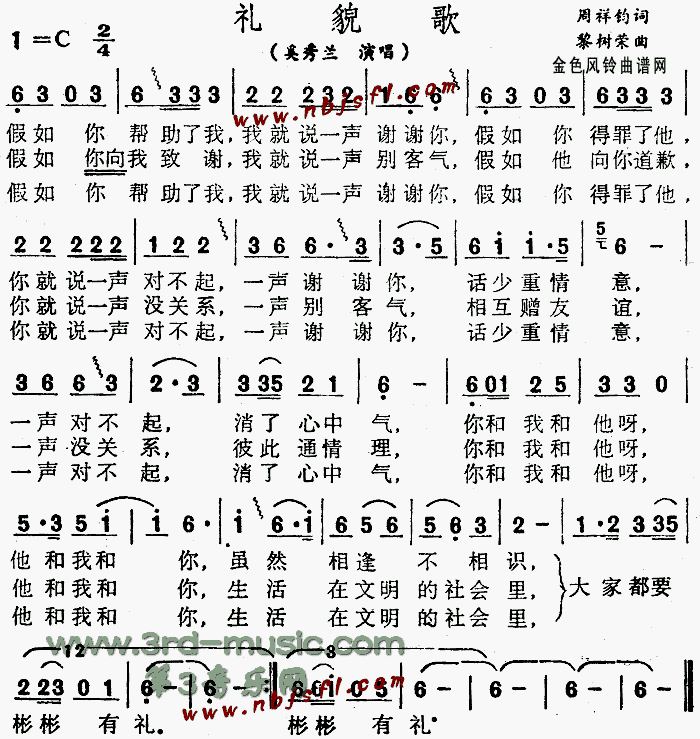 礼貌歌
周祥钧词
1=C 2/4
(奚秀兰 演唱)
黎树荣曲
金色风铃曲谱网
6 3 0 3 | 6 3 3 3 | 2 2 2 3 2 | 1 6 6 | 6 3 0 3 | 6 3 3 3 |
www.nbjsfl.com
假如 你 帮助了我,我就说一声 谢谢你,假如 你 得罪了他,
假如 你向我致 谢,我就说一声 别客气,假如 他 向你道歉,
假如 你 帮助了我,我就说一声 谢谢你,假如 你 得罪了他,
2 2 2 2 2 | 1 2 2 | 3 6 6 · 3 | 3 · 5 | 6 i i · 5 | 6 - |
你就说一声 对不起,一声谢 谢你, 话少重情 意,
你就说一声 没关系,一声别 客气, 相互赠友 谊,
你就说一声 对不起,一声谢 谢你, 话少重情 意,
3 6 6 3 | 2 · 3 | 3 3 5 2 1 | 6 - | 6 0 1 2 5 | 3 3 0 |
一声对不 起, 消了 心中 气, 你和 我和 他呀,
一声没关 系, 彼此 通情 理, 你和 我和 他呀,
一声对不 起, 消了 心中 气, 你和 我和 他呀,
5 · 3 5 i | i 6 · | i 6 · i | 6 5 6 | 5 6 5 3 | 2 - | 1 · 2 3 3 5 |
他 和我和 你,虽 然 相逢 不 相识,
他 和我和 你,生 活 在文明 的社会 里, 大 家都要
他 和我和 你,生 活 在文明 的社会 里,
www.3rd-music.com
第3音乐网
12 3
2 2 3 0 1 | 6 - | 6 - :| 6 0 1 0 5 | 6 - | 6 - | 6 - | 6 - ‖
www.nbjsfl.com
彬彬 有 礼. 彬彬 有 礼.